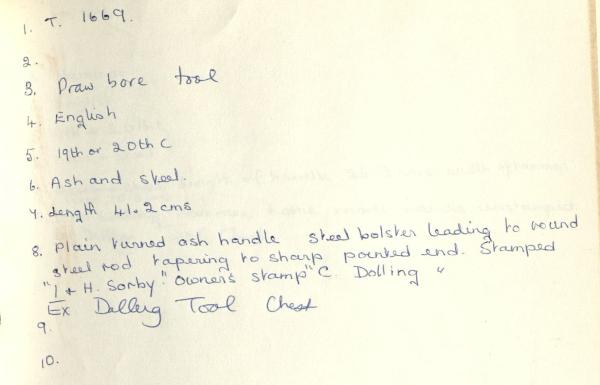 1. T. 1669.
2.
3. Draw bore tool
4. English
5. 19th or 20th C
6. Ash and steel.
7. Length 41.2 cms
8. Plain turned ash handle steel bolster leading to round
steel rod tapering to sharp pointed end. Stamped
"I & H. Sorby." Owner's stamp "C. Dolling"
Ex Dolling Tool Chest
9.
10.